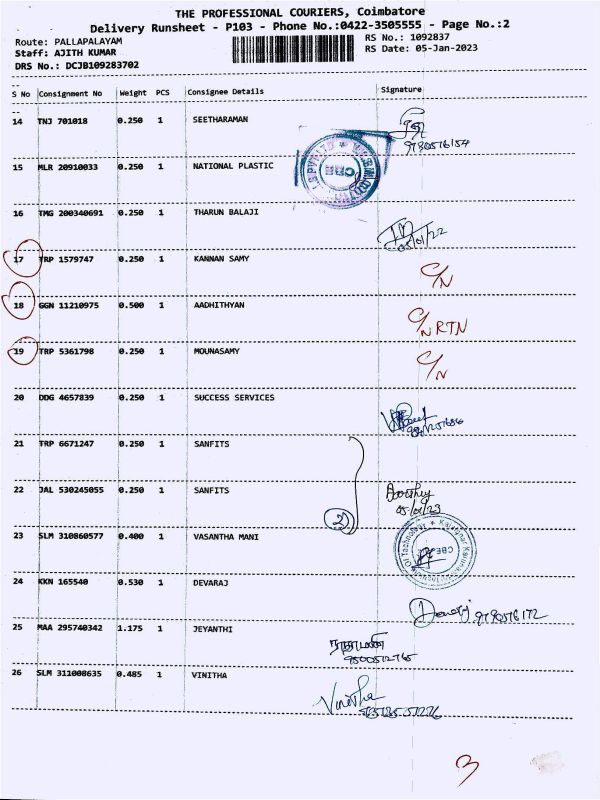 THE PROFESSIONAL COURIERS, Coimbatore
Delivery Runsheet - P103 - Phone No.:0422-3505555 - Page No.:2
Route: PALLAPALAYAM RS No.: 1092837
Staff: AJITH KUMAR RS Date: 05-Jan-2023
DRS No.: DCJB109283702
S No Consignment No Weight PCS Consignee Details Signature
14 TNJ 701018 0.250 1 SEETHARAMAN
9780516154
15 MLR 20910033 0.250 1 NATIONAL PLASTIC
CBE
16 TMG 200340691 0.250 1 THARUN BALAJI
05/01/22
17 TRP 1579747 0.250 1 KANNAN SAMY
C/N
18 GGN 11210975 0.500 1 AADHITHYAN
C/N RTN
19 TRP 5361798 0.250 1 MOUNASAMY
C/N
20 DDG 4657839 0.250 1 SUCCESS SERVICES
21 TRP 6671247 0.250 1 SANFITS
22 JAL 530245055 0.250 1 SANFITS
05/01/23
2
23 SLM 310860577 0.400 1 VASANTHA MANI
of Technology * Kalaignar
CBE
24 KKN 165540 0.530 1 DEVARAJ
Devaraj 9790516172
25 MAA 295740342 1.175 1 JEYANTHI
9500512765
26 SLM 311008635 0.485 1 VINITHA
Vinitha
3